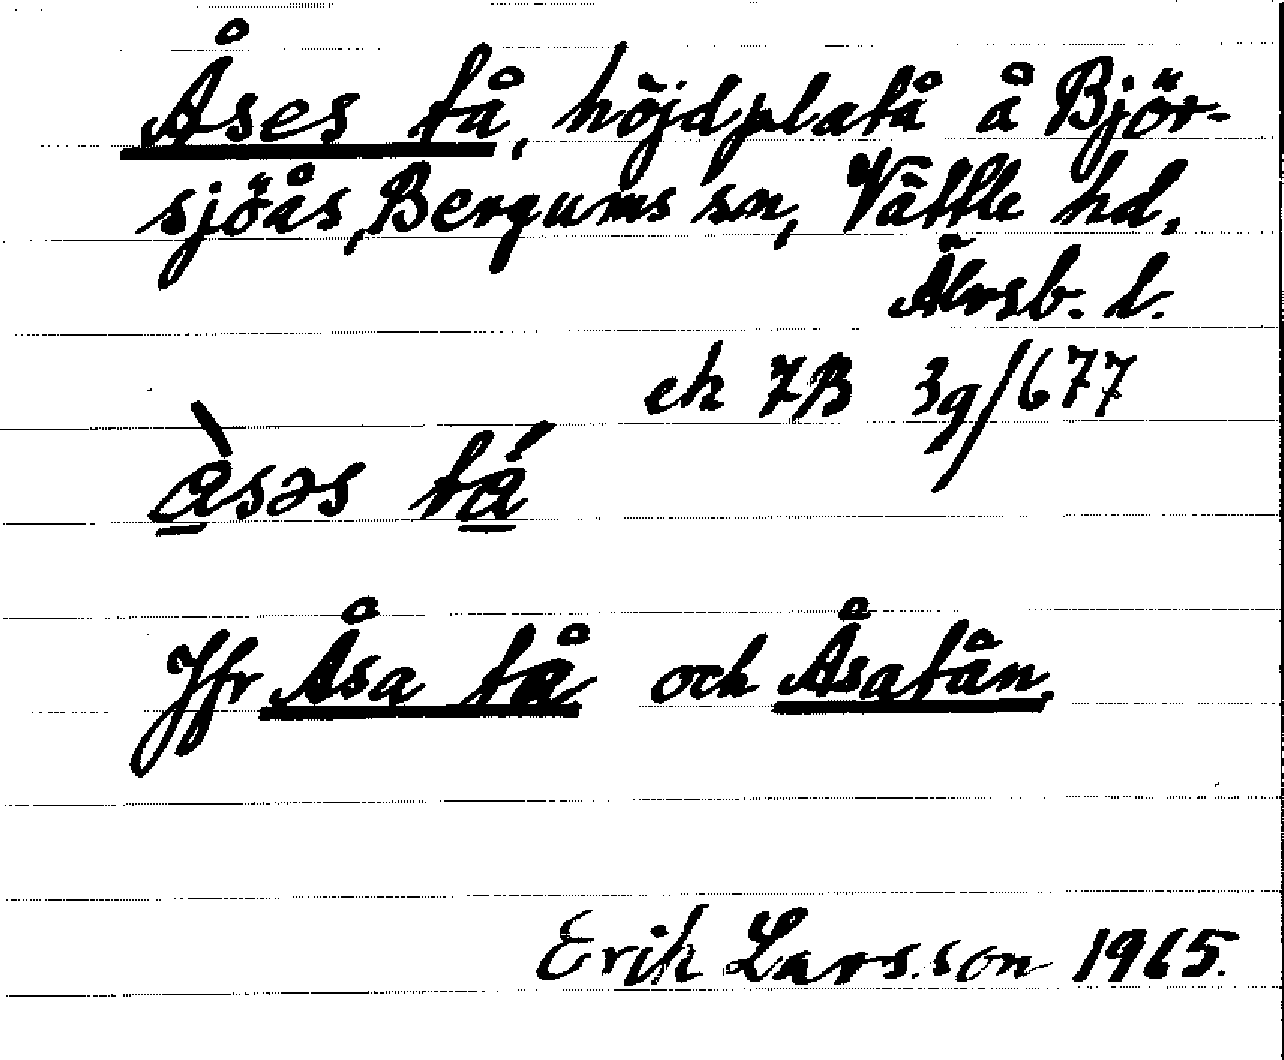 Åses tå, höjdplatå å Björ-
sjöås, Bergums sn, Vättle hd,
Älvsb. l.
ek 7B 3g/677
àsəs tá
Jfr Åsa tå och Åsatån.
Erik Larsson 1965.